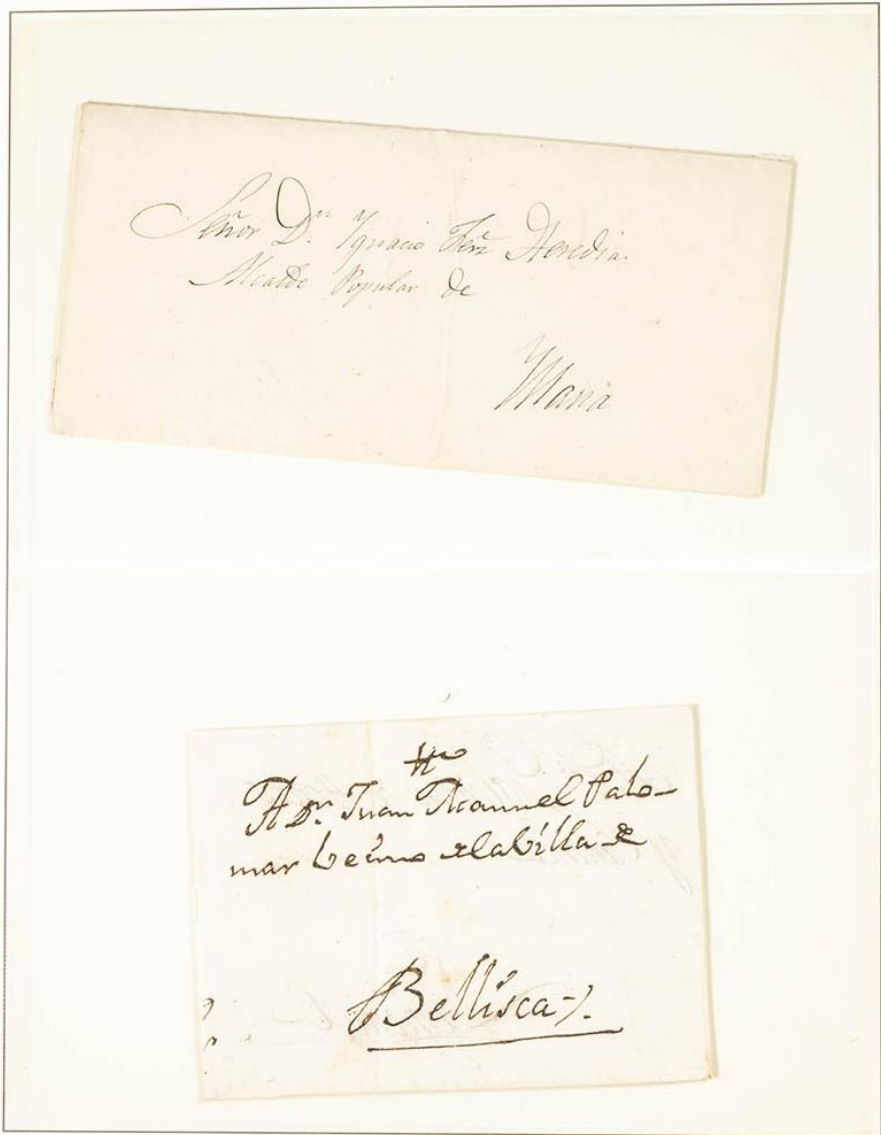 Señor Dn. Ygnacio Ferz Heredia.
Alcalde Popular de
Maria
A Dn. Juan Manuel Palo-
mar becino de la billa de
Bellisca